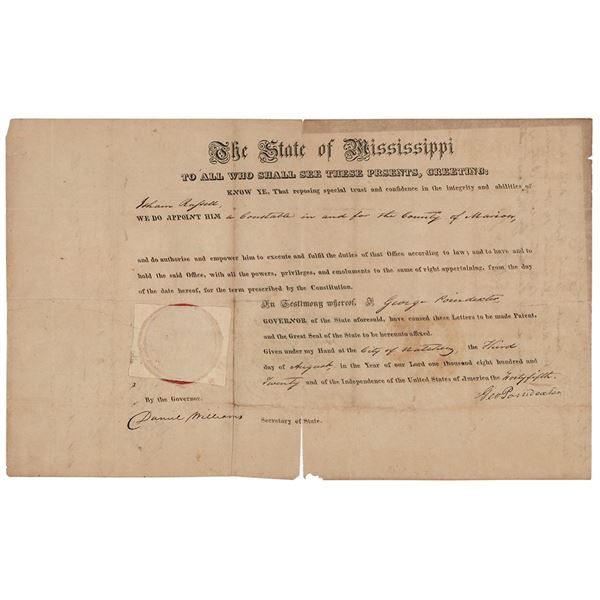 The State of Mississippi
TO ALL WHO SHALL SEE THESE PRSENTS, GREETING:
KNOW YE, That reposing special trust and confidence in the integrity and abilities of
Isham Russell,
WE DO APPOINT HIM a Constable in and for the County of Marion,
and do authorise and empower him to execute and fulfil the duties of that Office according to law; and to have and to
hold the said Office, with all the powers, privileges, and emoluments to the same of right appertaining, from the day
of the date hereof, for the term prescribed by the Constitution.
In Testimony whereof, I George Poindexter,
GOVERNOR of the State aforesaid, have caused these Letters to be made Patent,
and the Great Seal of the State to be hereunto affixed.
Given under my Hand at the City of Natchez, the Third
day of August in the Year of our Lord one thousand eight hundred and
Twenty and of the Independence of the United States of America the Fortyfifth.
Geo Poindexter
By the Governor.
Daniel Williams Secretary of State.